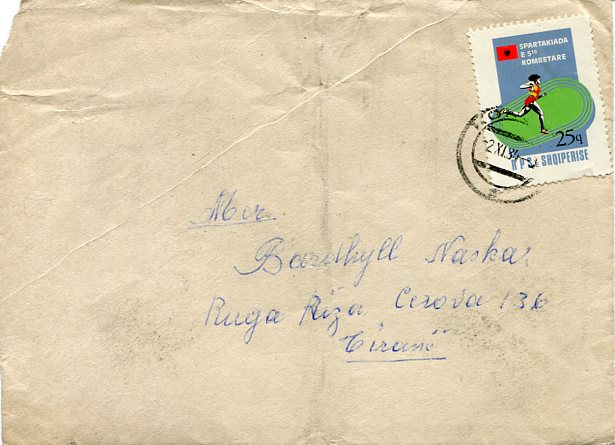 SPARTAKIADA
E 5të
KOMBETARE
25q
R P S E SHQIPERISE
2.XI.84
Mer.
Bardhyll Naskai
Ruga Riza Cerova 136
Tiranë